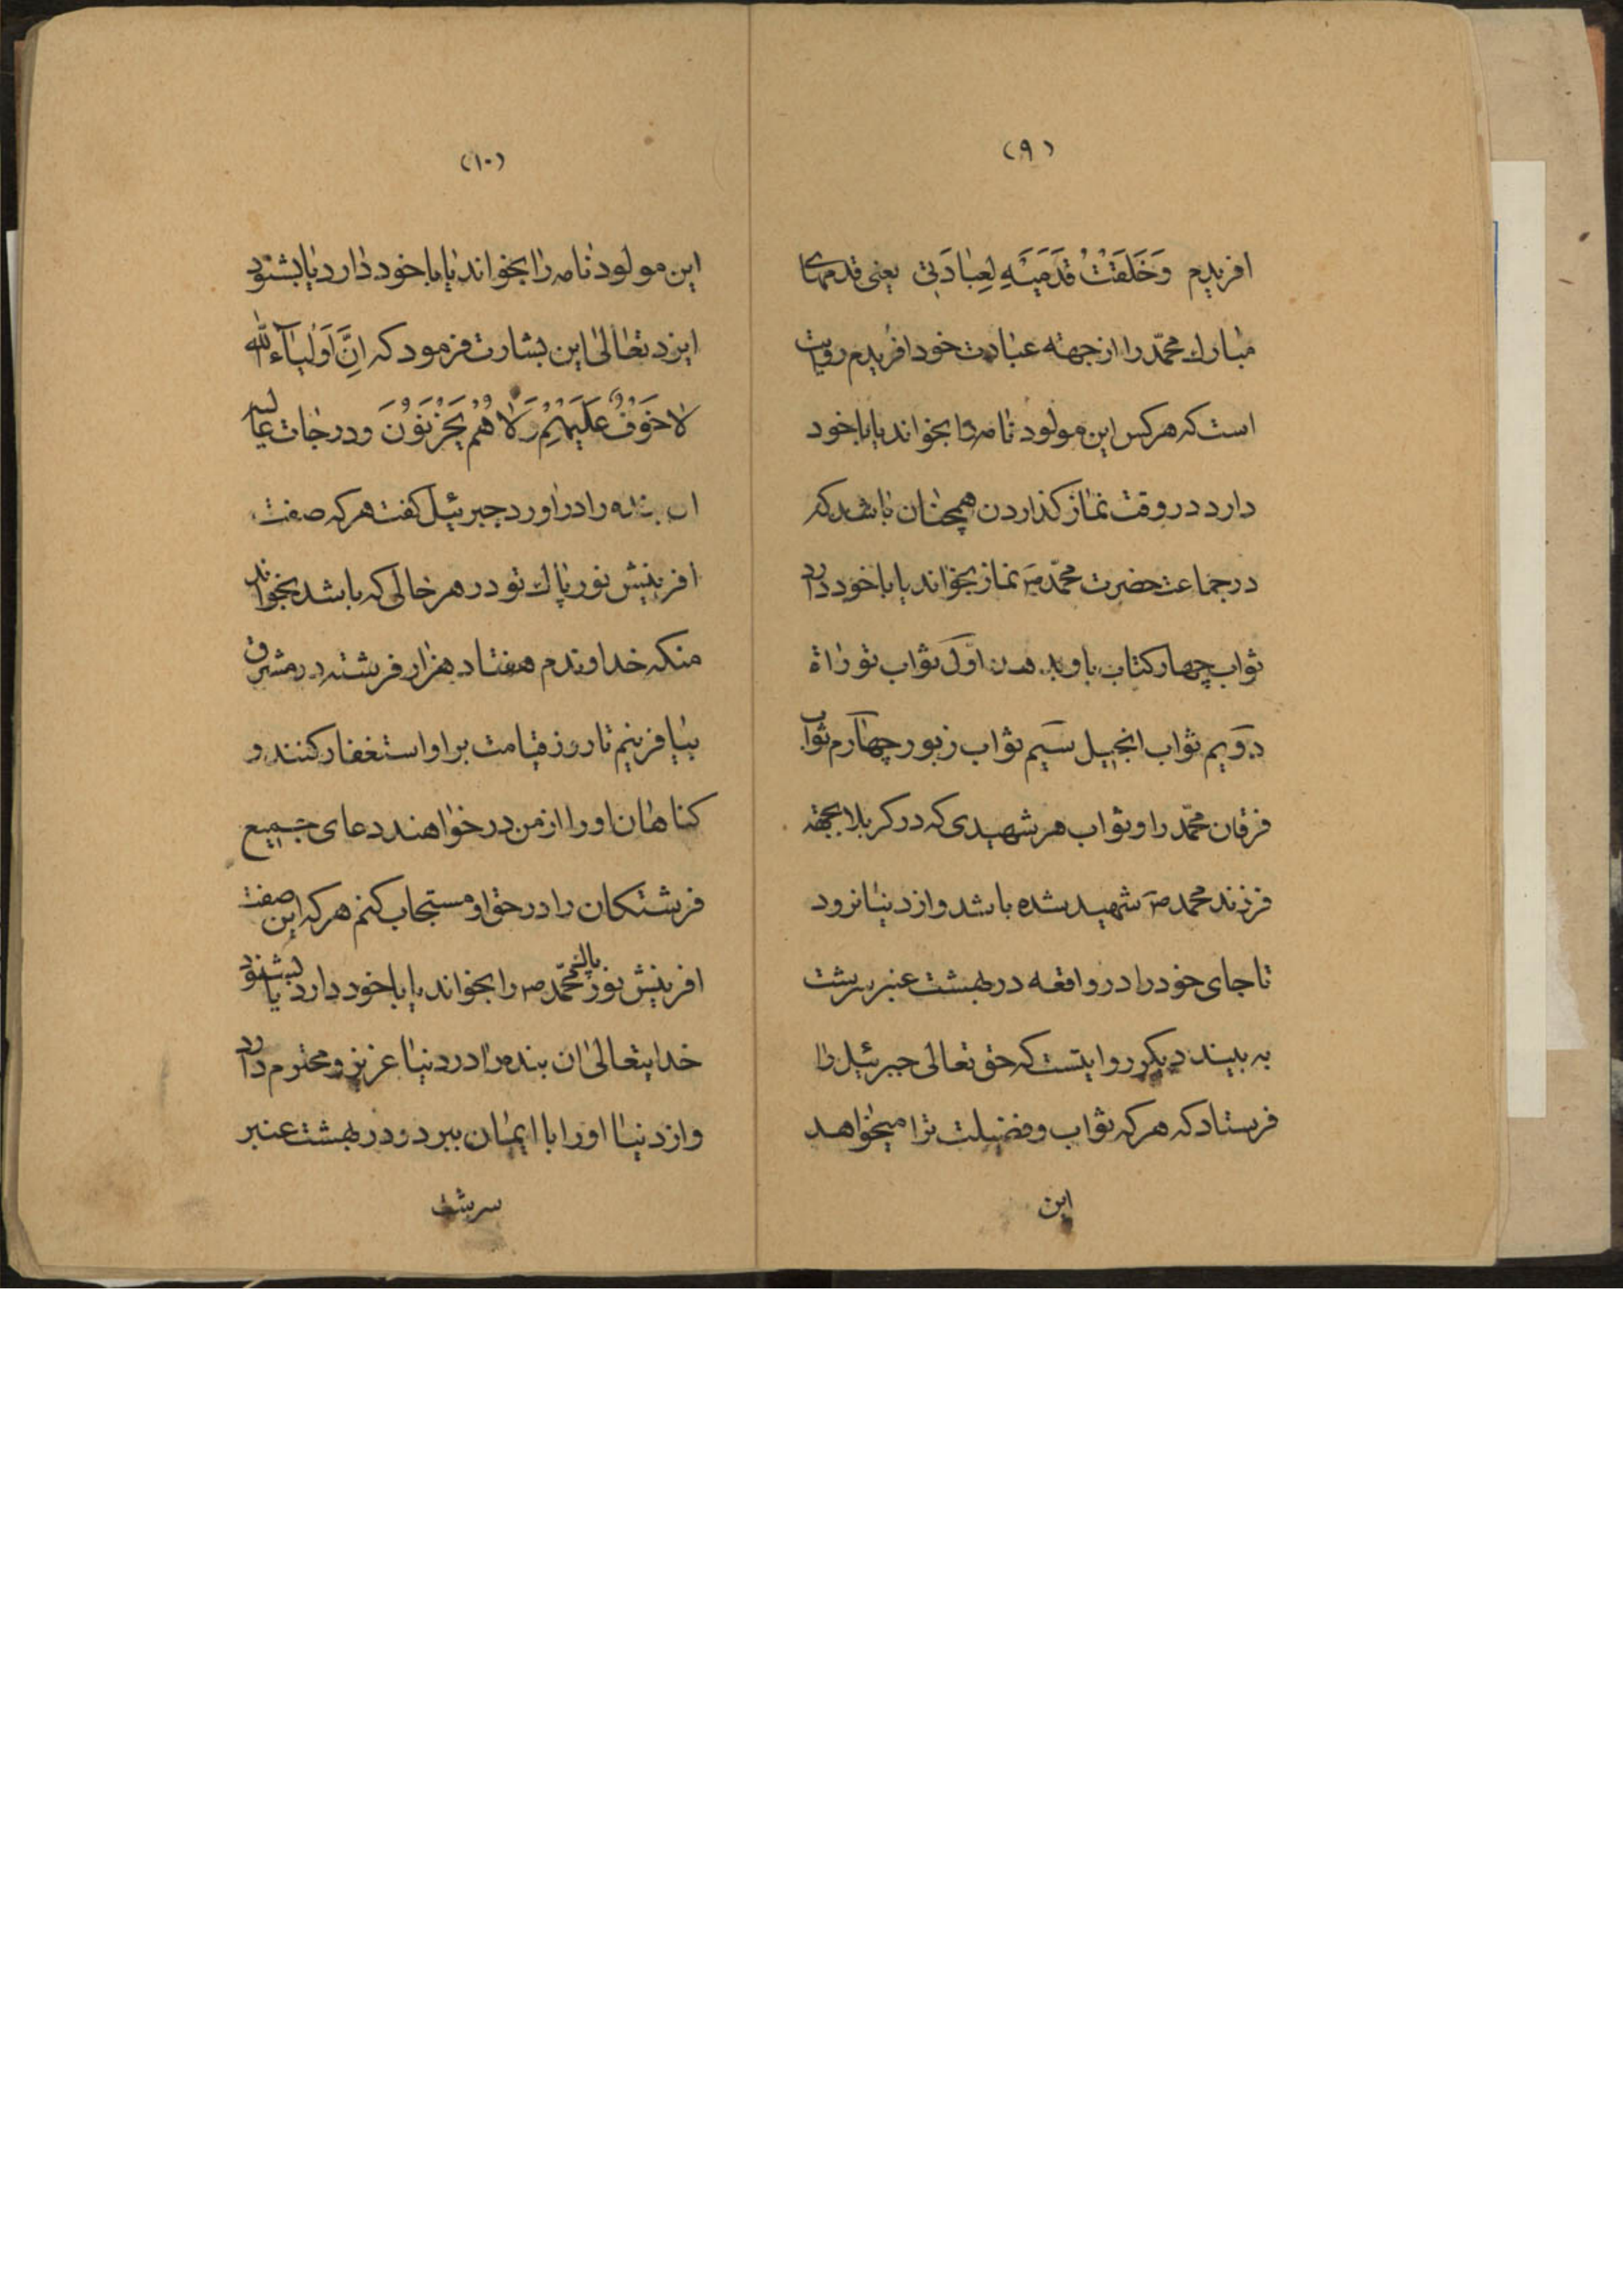 (۹)
افریدم وَخَلَقْتُ قَدَمَیْهِ لِعِبادَتی یعنی قدمهای
مبارك محمّد را از جهته عبادت خود افریدم روایت
است که هر کس این مولود نامه را بخواند یا با خود
دارد در وقت نماز کذاردن همچنان باشد که
در جماعت حضرت محمّد ص نماز بخواند یا با خود دارد
ثواب چهار کتاب باو اوّل ثواب توراة
دویم ثواب انجیل سیم ثواب زبور چهارم ثواب
فرقان محمّد را و ثواب هر شهیدی که در کربلا بجهته
فرزند محمد ص شهید شده باشد و از دنیا نرود
تا جای خود را در واقعه در بهشت عنبر سرشت
به بیند دیکر روایتست که حق تعالی جبرئیل را
فرستاد که هر که ثواب و فضیلت ترا میخواهد
این
(۱۰)
این مولود نامه را بخواند یا با خود دارد یا بشنود
ایزد تعالی این بشارت فرمود که اِنَّ اَوْلیآءَ اللّٰه
لا خَوْفٌ عَلَیْهِمْ وَلا هُمْ یَحْزَنُوْنَ ودرجات عالیه
ان بنده را در اورد جبرئیل کفت هر که صفت
افرینش نور پاك تو در هر حالی که باشد بخواند
منکه خداوندم هفتاد هزار فرشته در مشرق
بیافرینم تا روز قیامت بر او استغفار کنند و
کناهان او را از من در خواهند دعای جمیع
فرشتکان را در حق او مستجاب کنم هر که این صفت
افرینش نور پاك محمّد ص را بخواند یا با خود دارد یا بشنود
خدایتعالی ان بنده را در دنیا عزیز و محترم دارد
و از دنیا او را با ایمان ببرد و در بهشت عنبر
سرشت